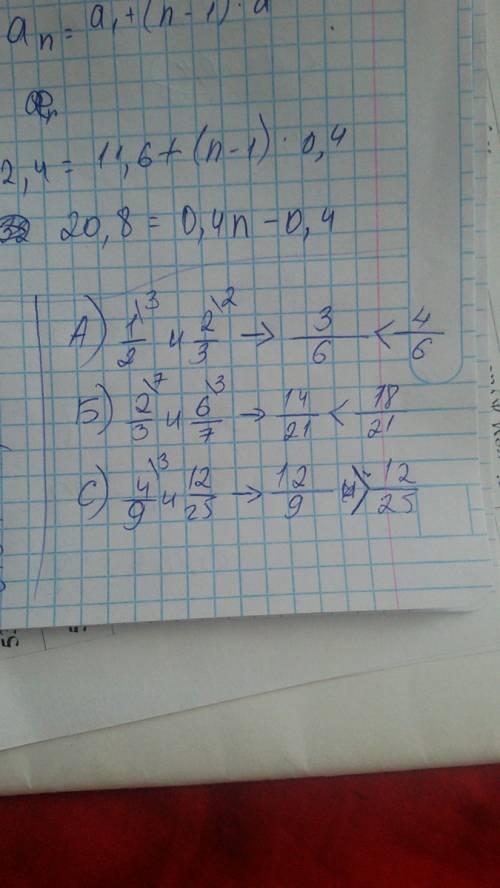 aₙ = a₁ + (n - 1) · d
2,4 = 11,6 + (n - 1) · 0,4
20,8 = 0,4n - 0,4
А) 1/2 \3 и 2/3 \2 → 3/6 < 4/6
Б) 2/3 \7 и 6/7 \3 → 14/21 < 18/21
С) 4/9 \3 и 12/25 → 12/9 > 12/25